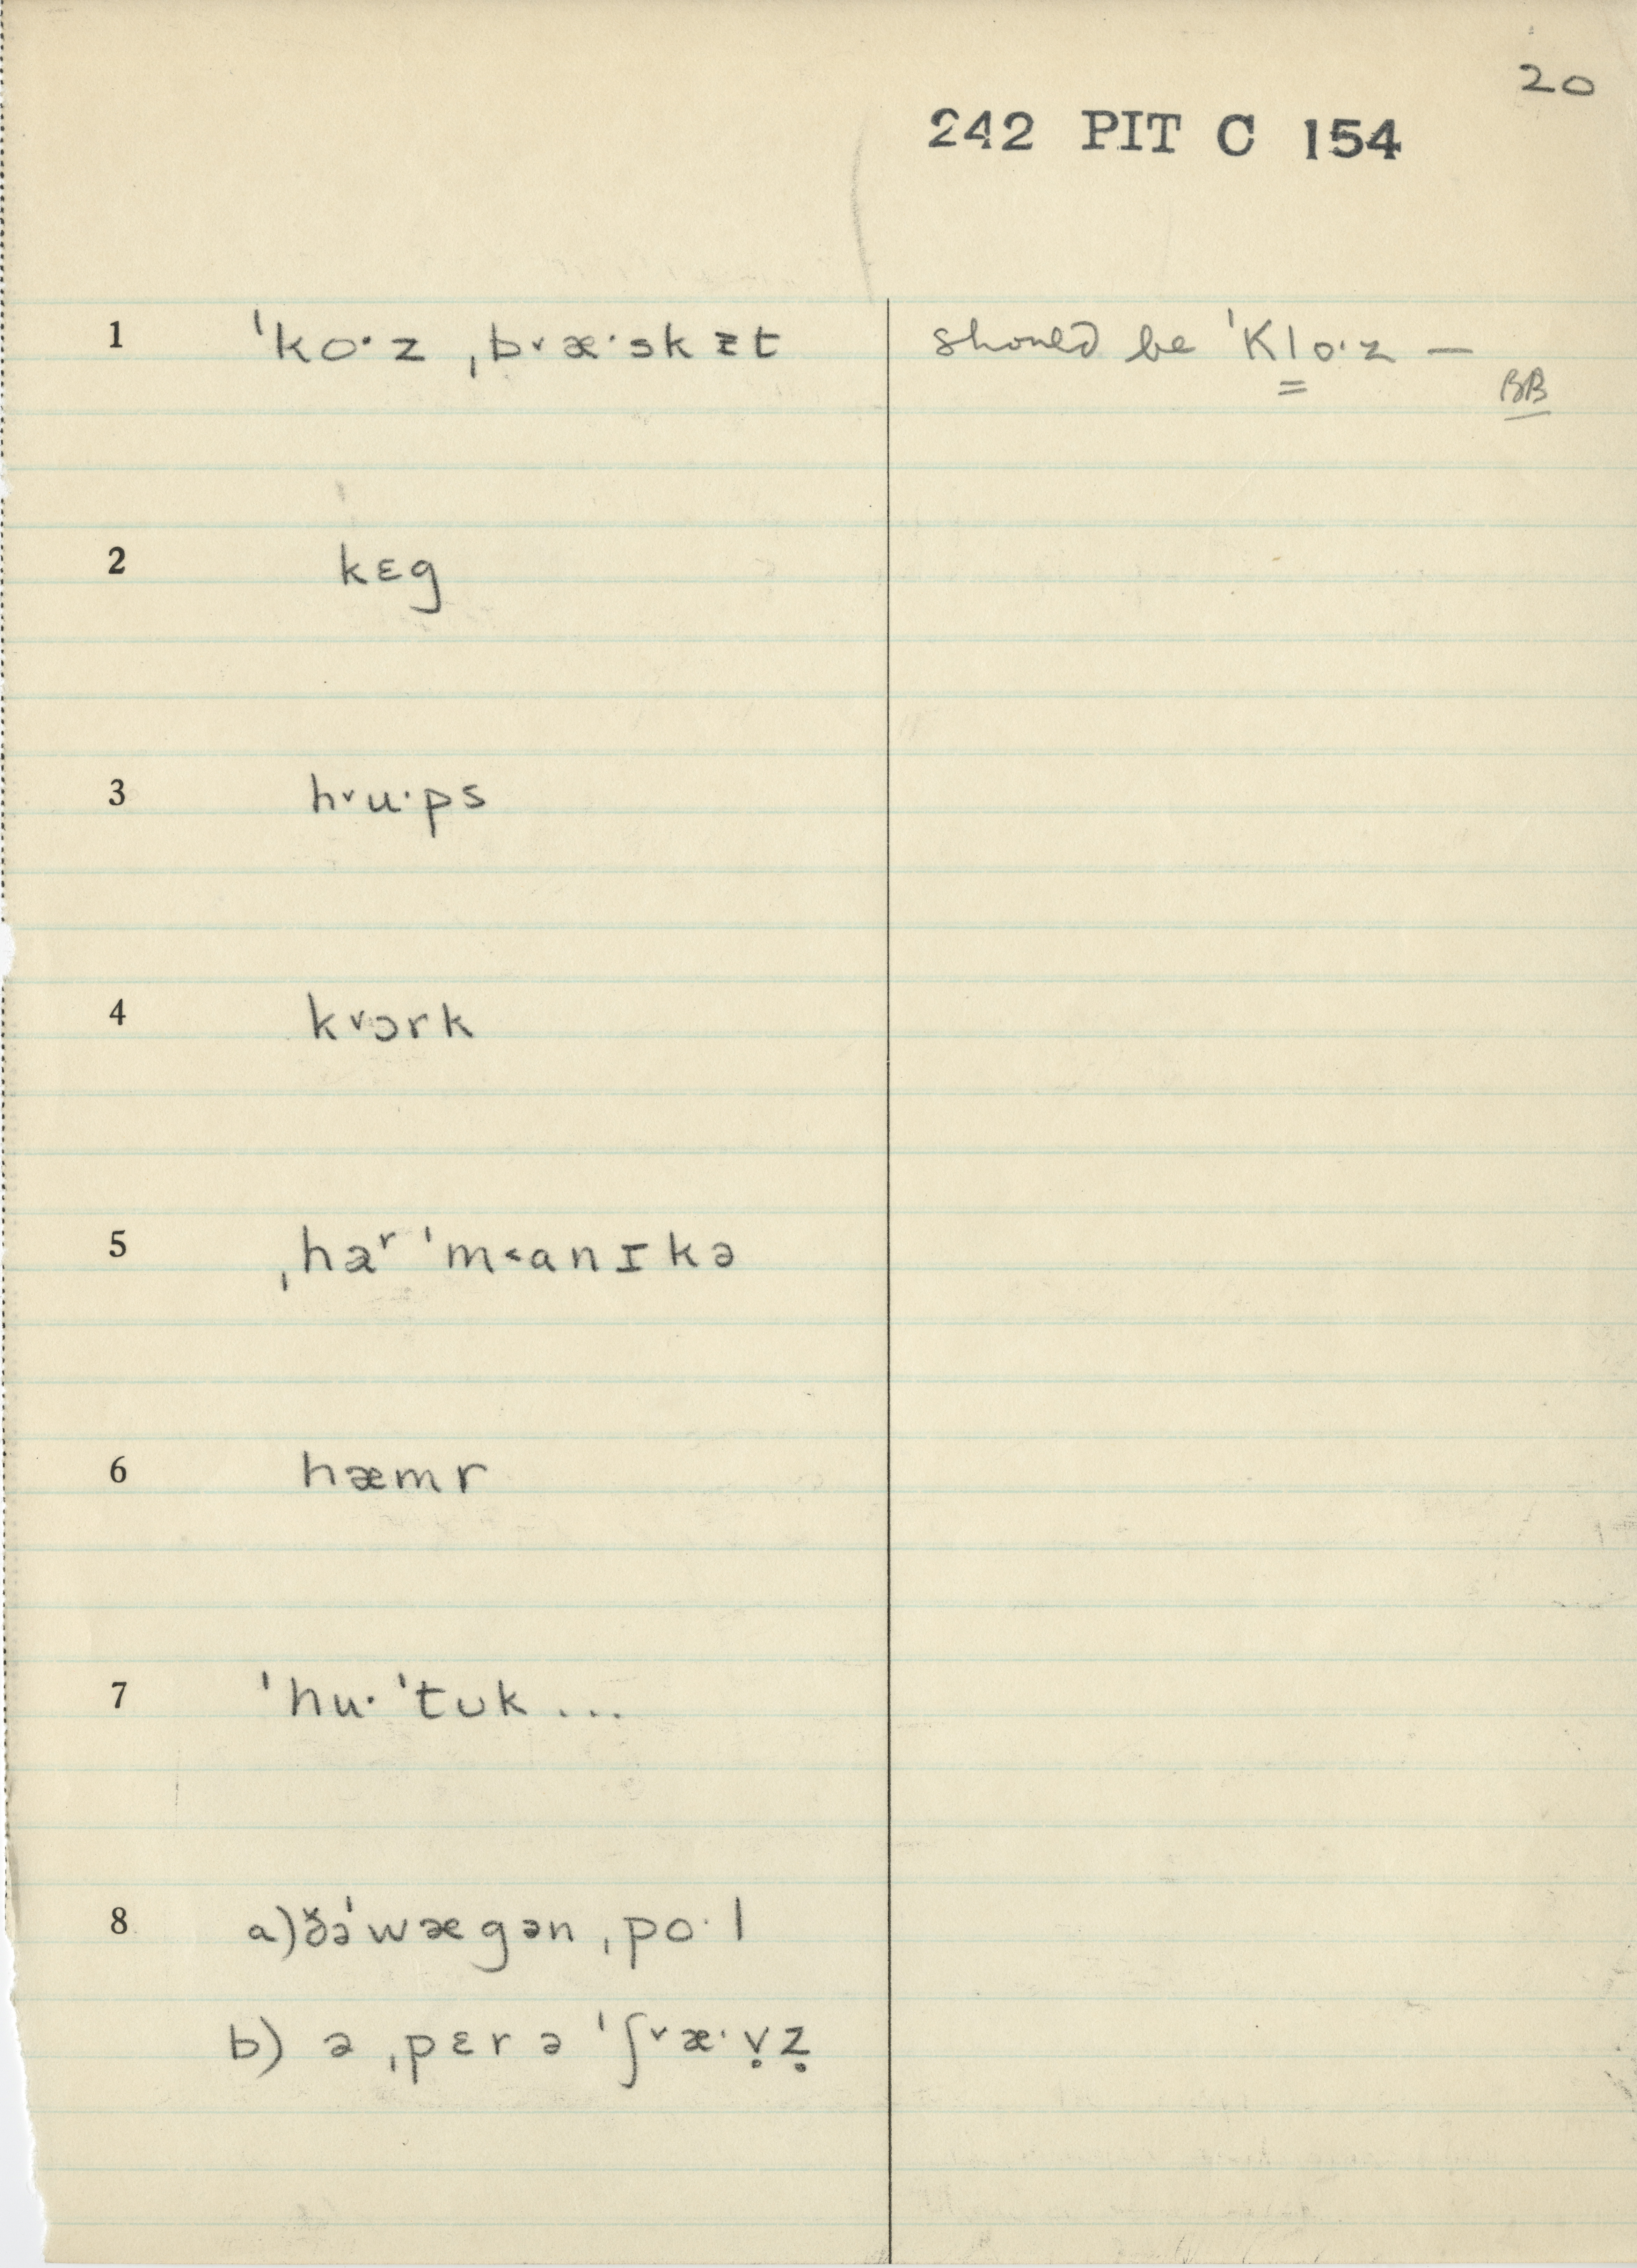 20
242 PIT C 154
1 ˈko·z ˌb˅æ·skᵻt should be ˈKlo·z —
BB
2 kɛg
3 h˅u·ps
4 k˅ɔrk
5 ˌhəʳˈm˂anɪkə
6 hæmr
7 ˈhu· ˈtʊk ...
8 a) ð̌əˈwægən ˌpo·l
b) ə ˌpɛr ə ˈʃ˅æ·ṿẓ